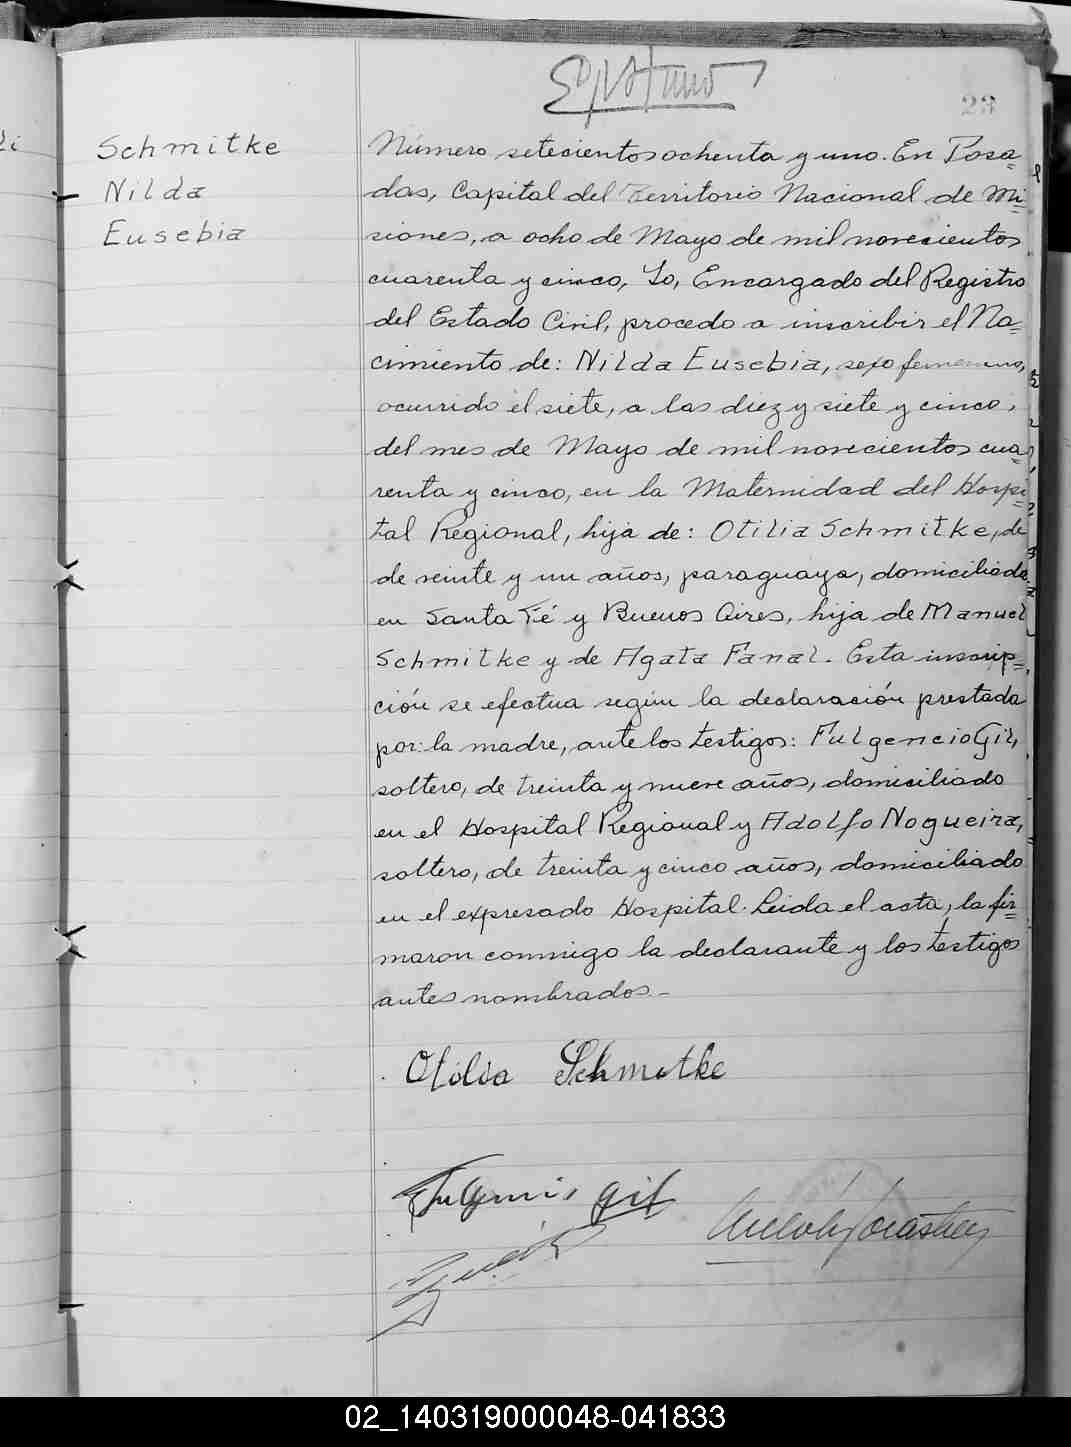 23
Schmitke
Nilda
Eusebia
Número setecientos ochenta y uno. En Posa=
das, Capital del Territorio Nacional de Mi=
siones, a ocho de Mayo de mil novecientos
cuarenta y cinco, Yo, Encargado del Registro
del Estado Civil, procedo a inscribir el Na=
cimiento de: Nilda Eusebia, sexo femenino,
ocurrido el siete, a las diez y siete y cinco,
del mes de Mayo de mil novecientos cua=
renta y cinco, en la Maternidad del Hospi=
tal Regional, hija de: Otilia Schmitke, de
de veinte y un años, paraguaya, domiciliada
en Santa Fé y Buenos Aires, hija de Manuel
Schmitke y de Agata Fanal. Esta inscrip=
ción se efectua según la declaración prestada
por: la madre, ante los testigos: Fulgencio Gil,
soltero, de treinta y nueve años, domiciliado
en el Hospital Regional y Adolfo Nogueira,
soltero, de treinta y cinco años, domiciliado
en el expresado Hospital. Leida el acta, la fir=
maron conmigo la declarante y los testigos
antes nombrados.-
Otilia Schmitke
Fulgencio Gil
02_140319000048-041833